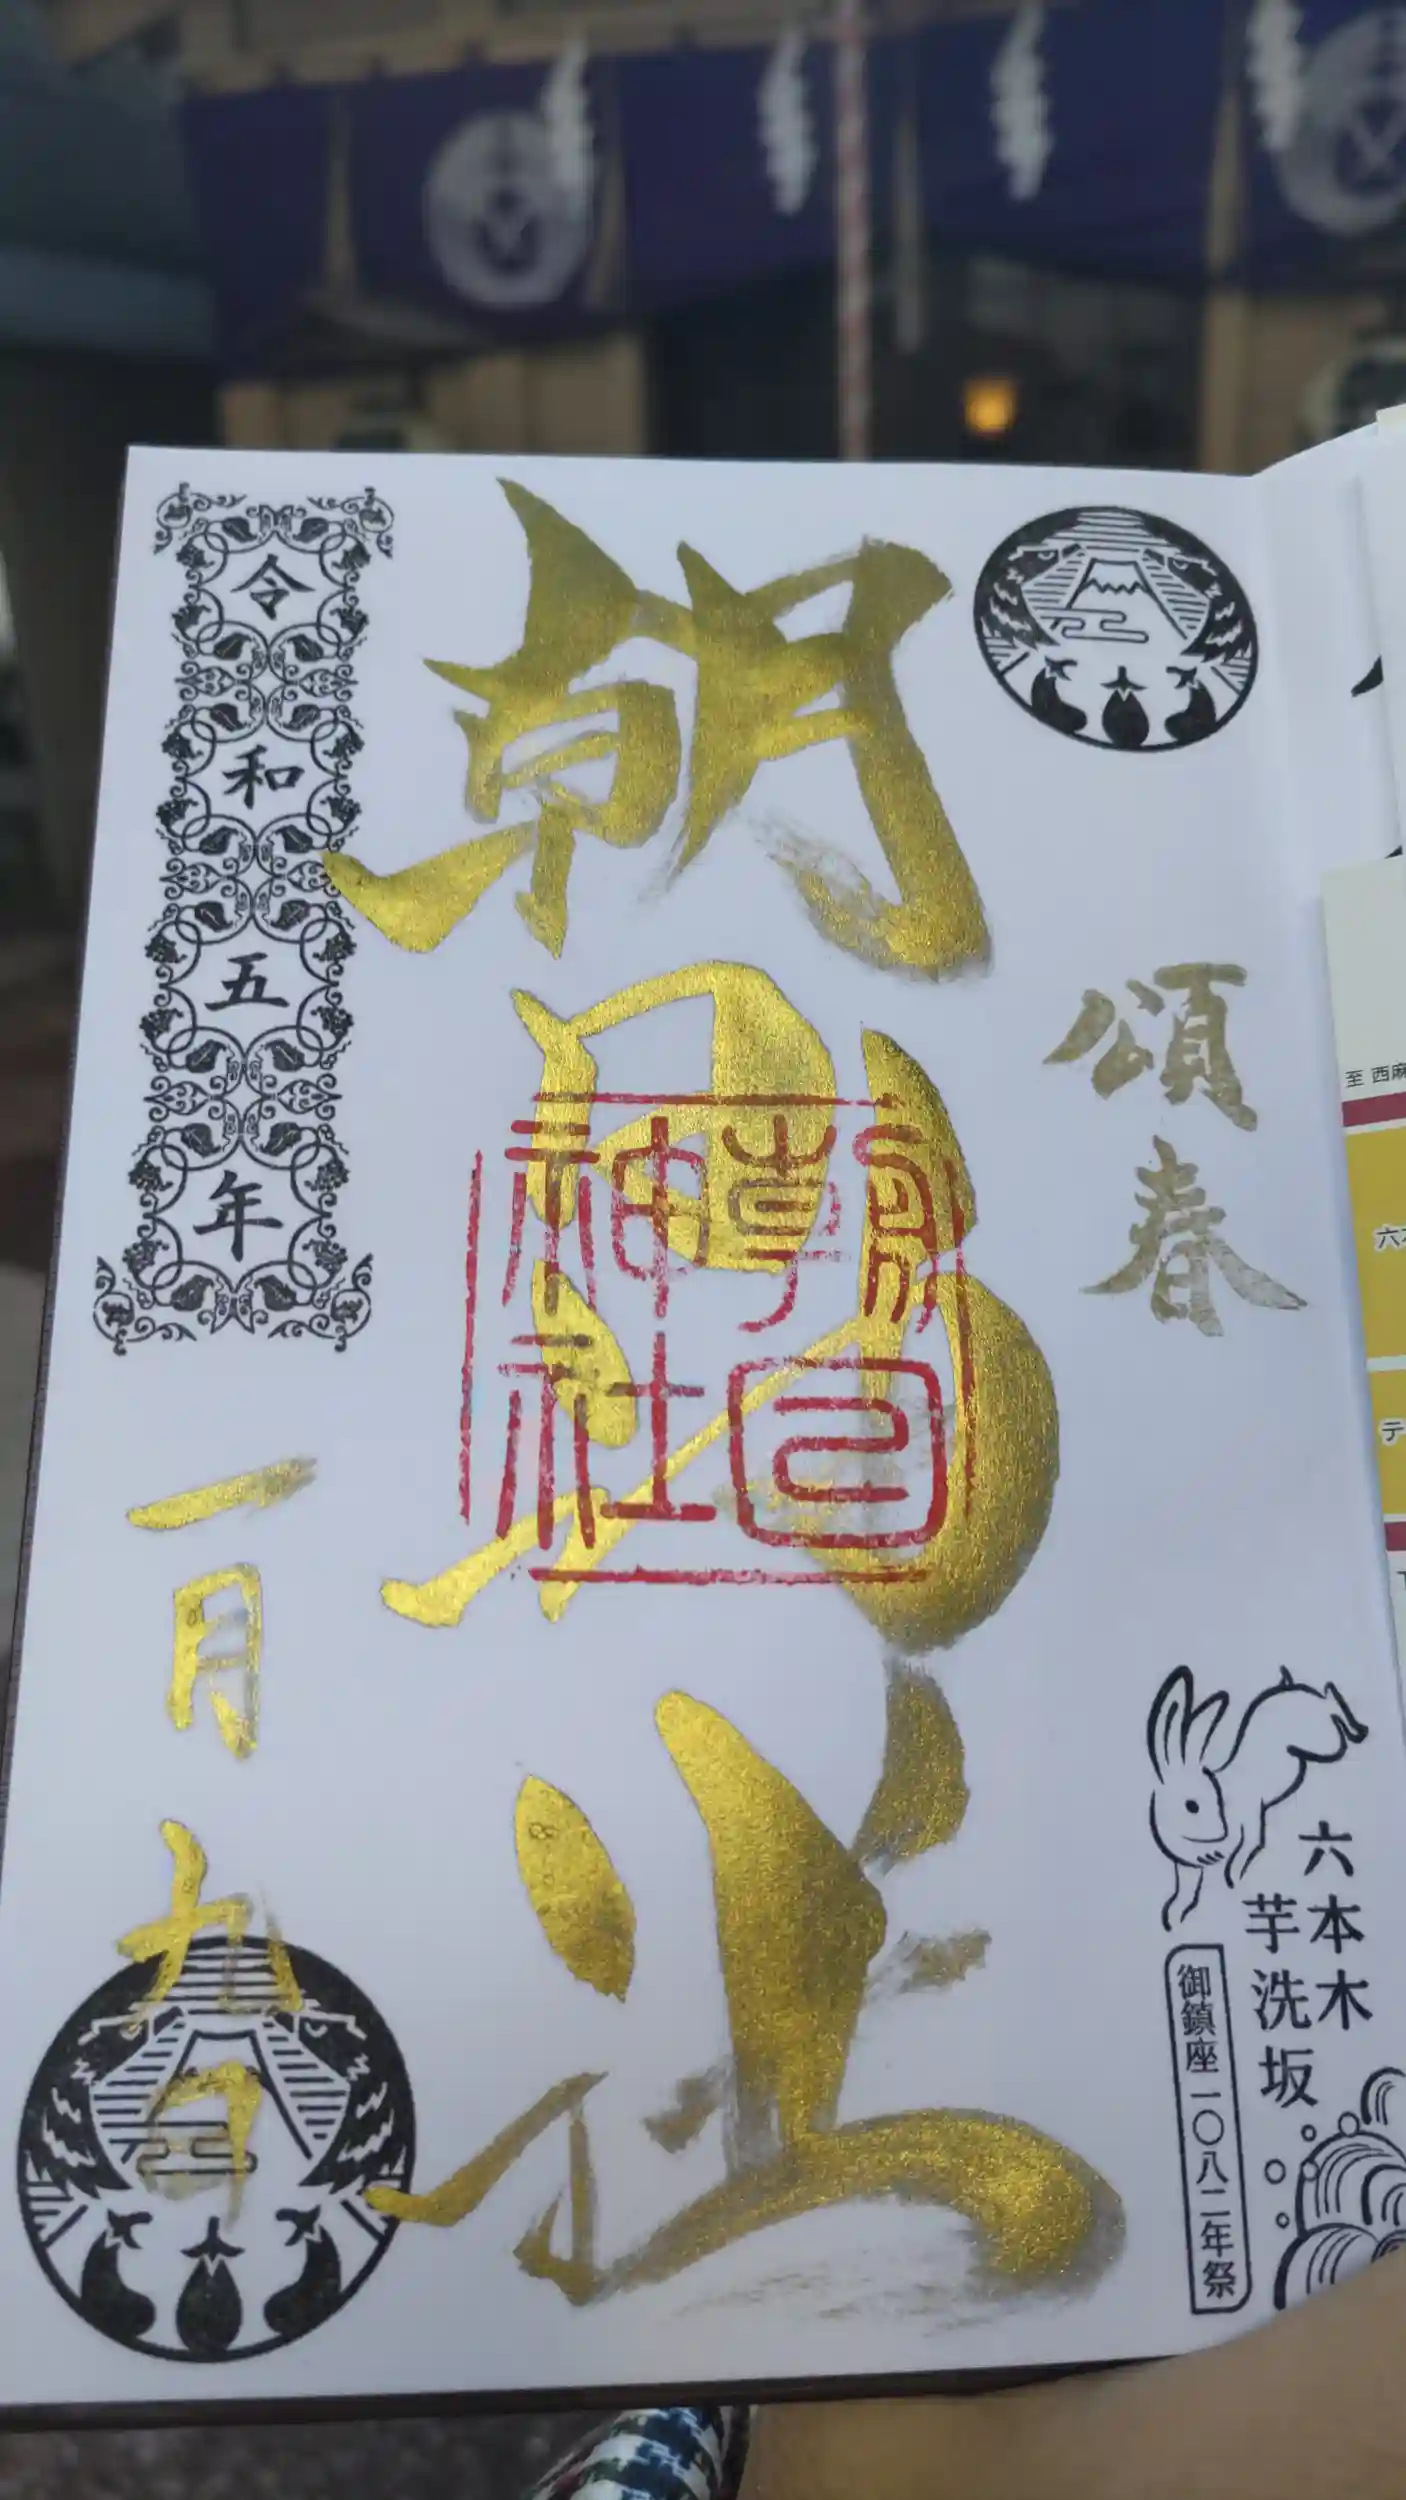 頌春
六本木
芋洗坂
御鎮座一〇八二年祭
朝日神社
朝日神社
令和五年
一月九日
至 西麻